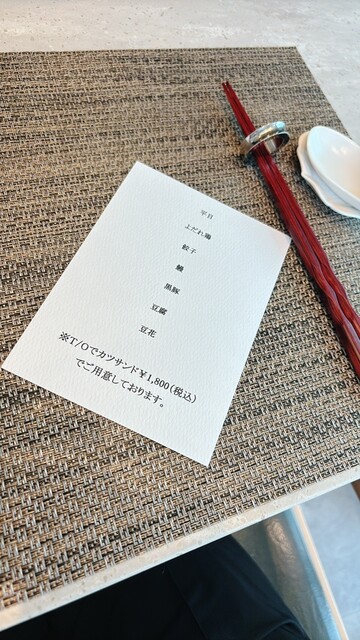 平目
よだれ鶏
餃子
鯛
黒豚
豆腐
豆花
※T/Oでカツサンド￥1,800(税込)
でご用意しております。